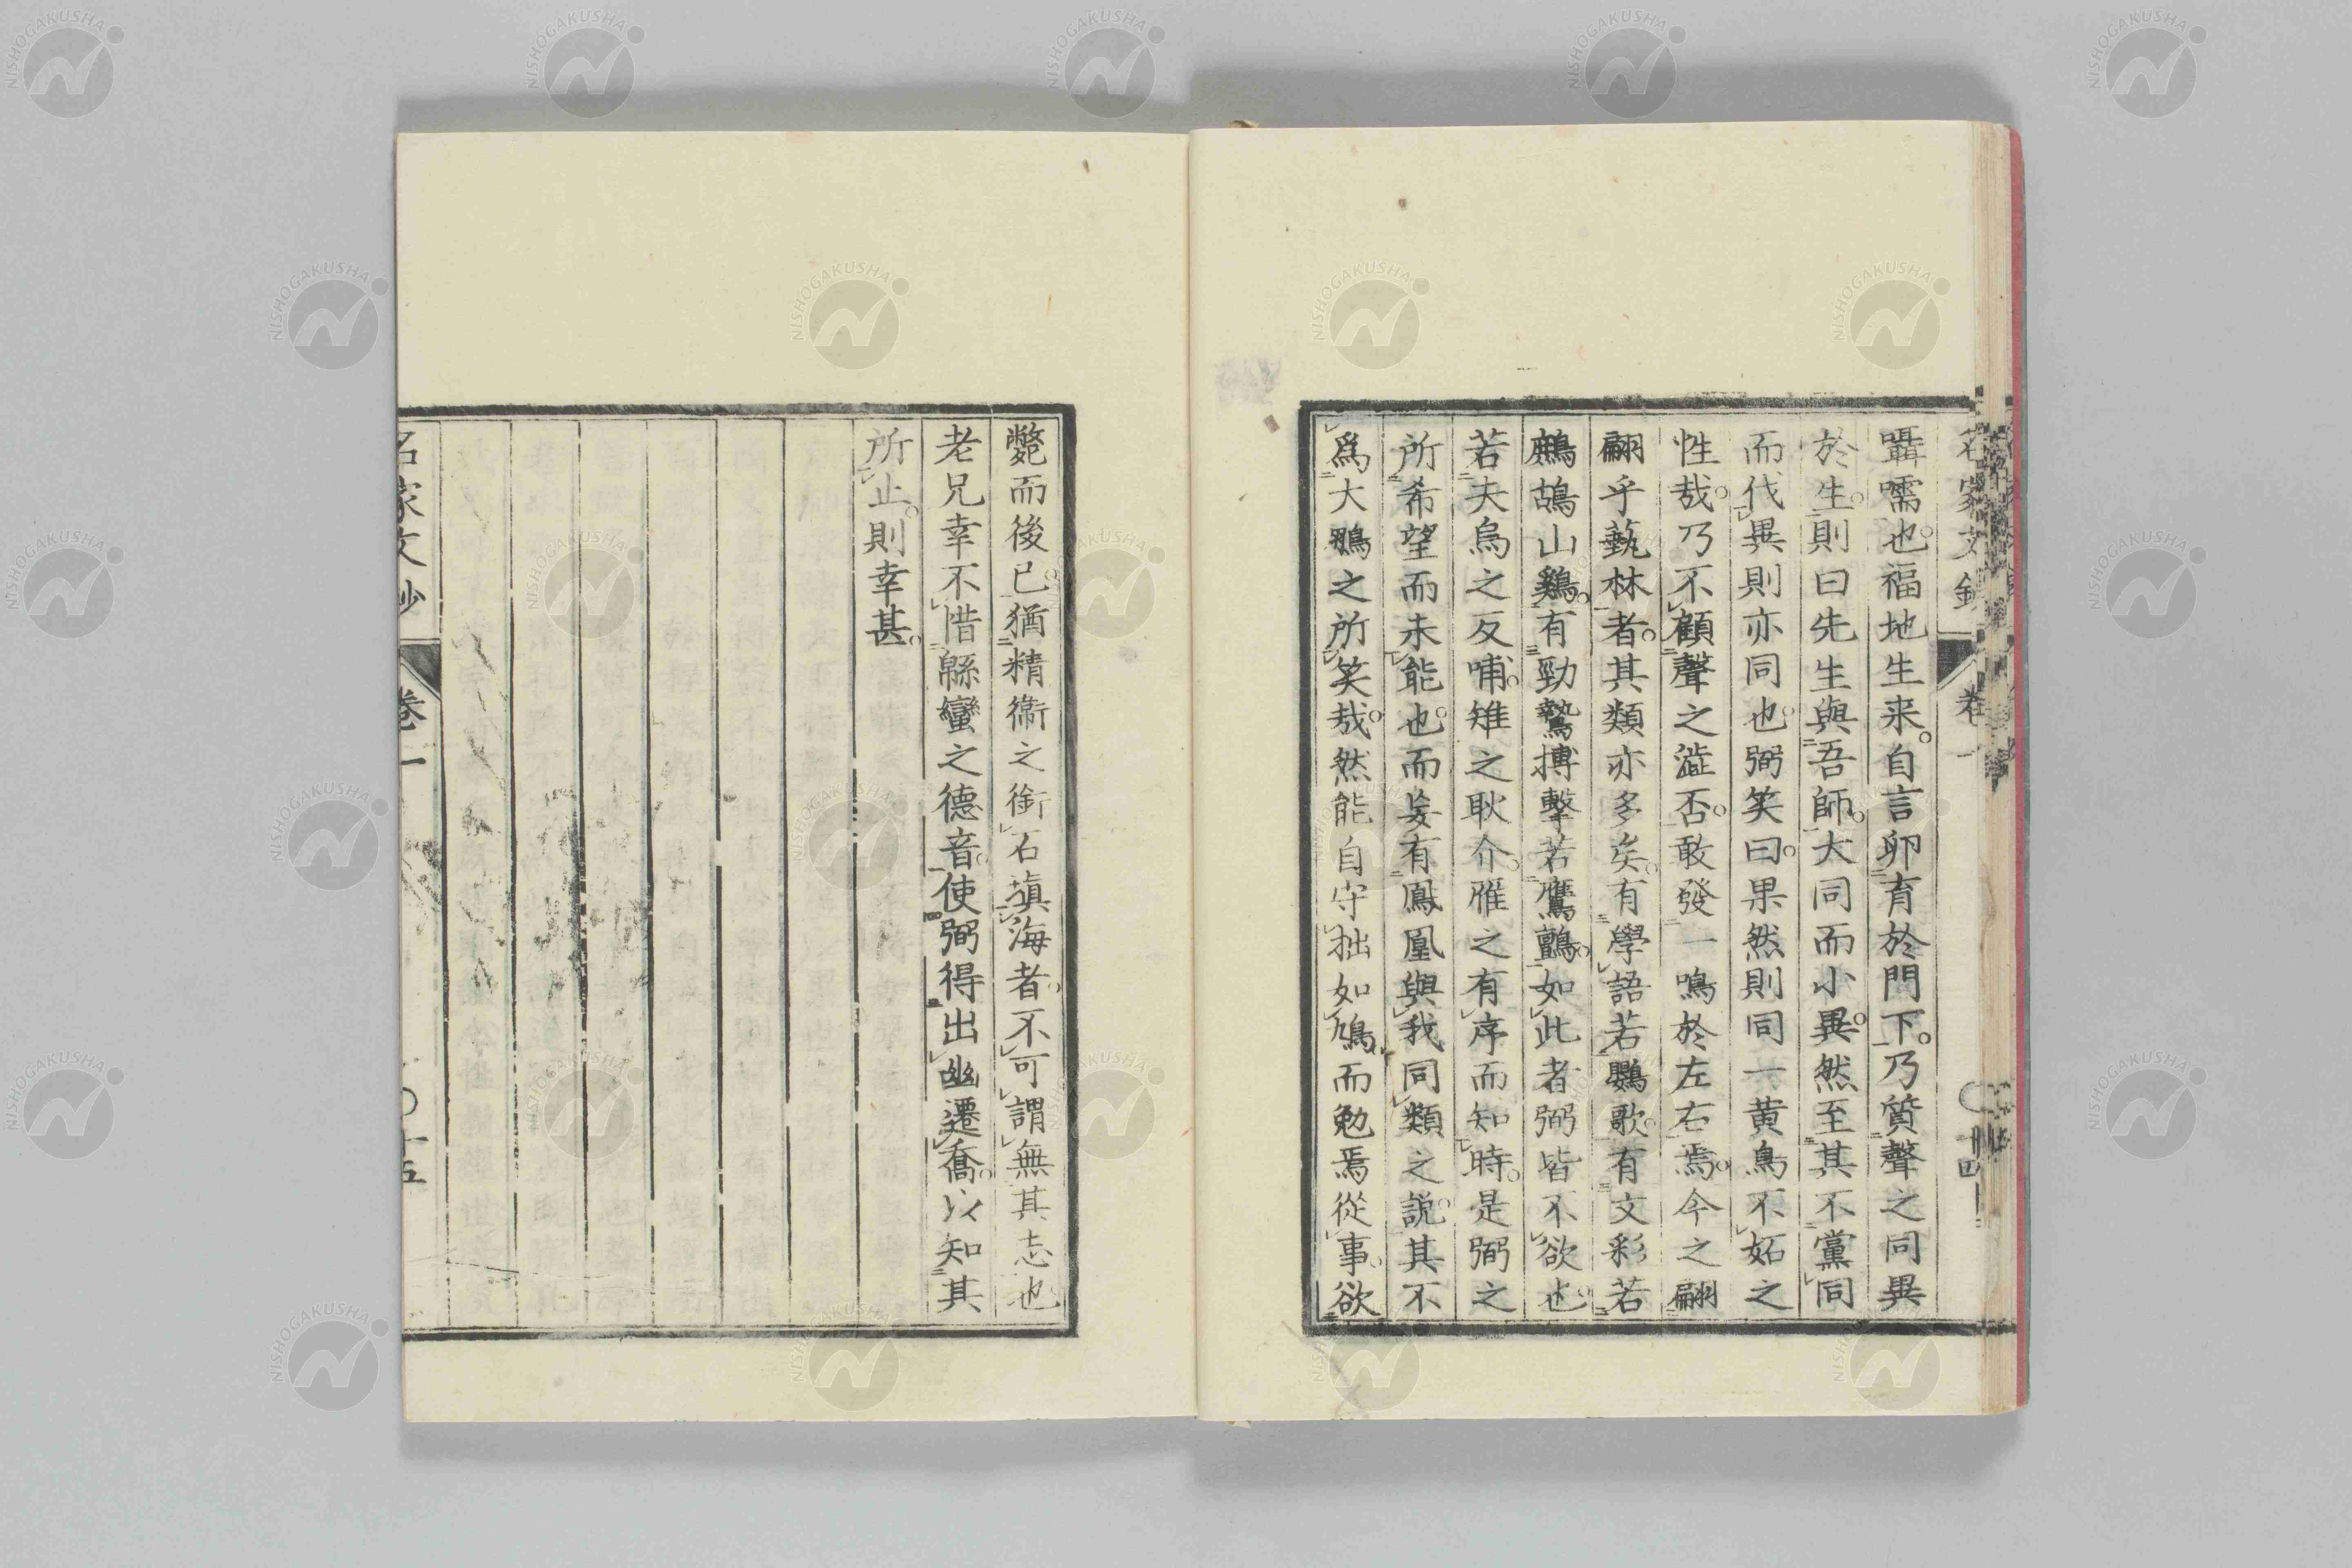 囁嚅也。福地生来。自言卵育於門下。乃質聲之同異
於生。則曰先生與吾師。大同而小異。然至其不黨同
而伐異則亦同也。弼笑曰。果然則同一黄鳥不妬之
性哉。乃不顧聲之澁否。敢發一鳴於左右焉。今之翩
翩乎藝林者。其類亦多矣。有學語若鸚歌。有文彩若
鷓鴣山鷄。有勁鷙搏擊若鷹鸇。如此者弼皆不欲也。
若夫烏之反哺。雉之耿介。雁之有序而知時。是弼之
所希望而未能也。而妄有鳳凰與我同類之説。其不
爲大鵬之所笑哉。然能自守拙如鳩而勉焉從事。欲
斃而後已。猶精衞之銜石塡海者。不可謂無其志也
老兄幸不惜緜蠻之德音。使弼得出幽遷喬。以知其
所止。則幸甚。
名家文鈔
卷一
十四
名家文鈔
卷一
十五
NISHOGAKUSHA